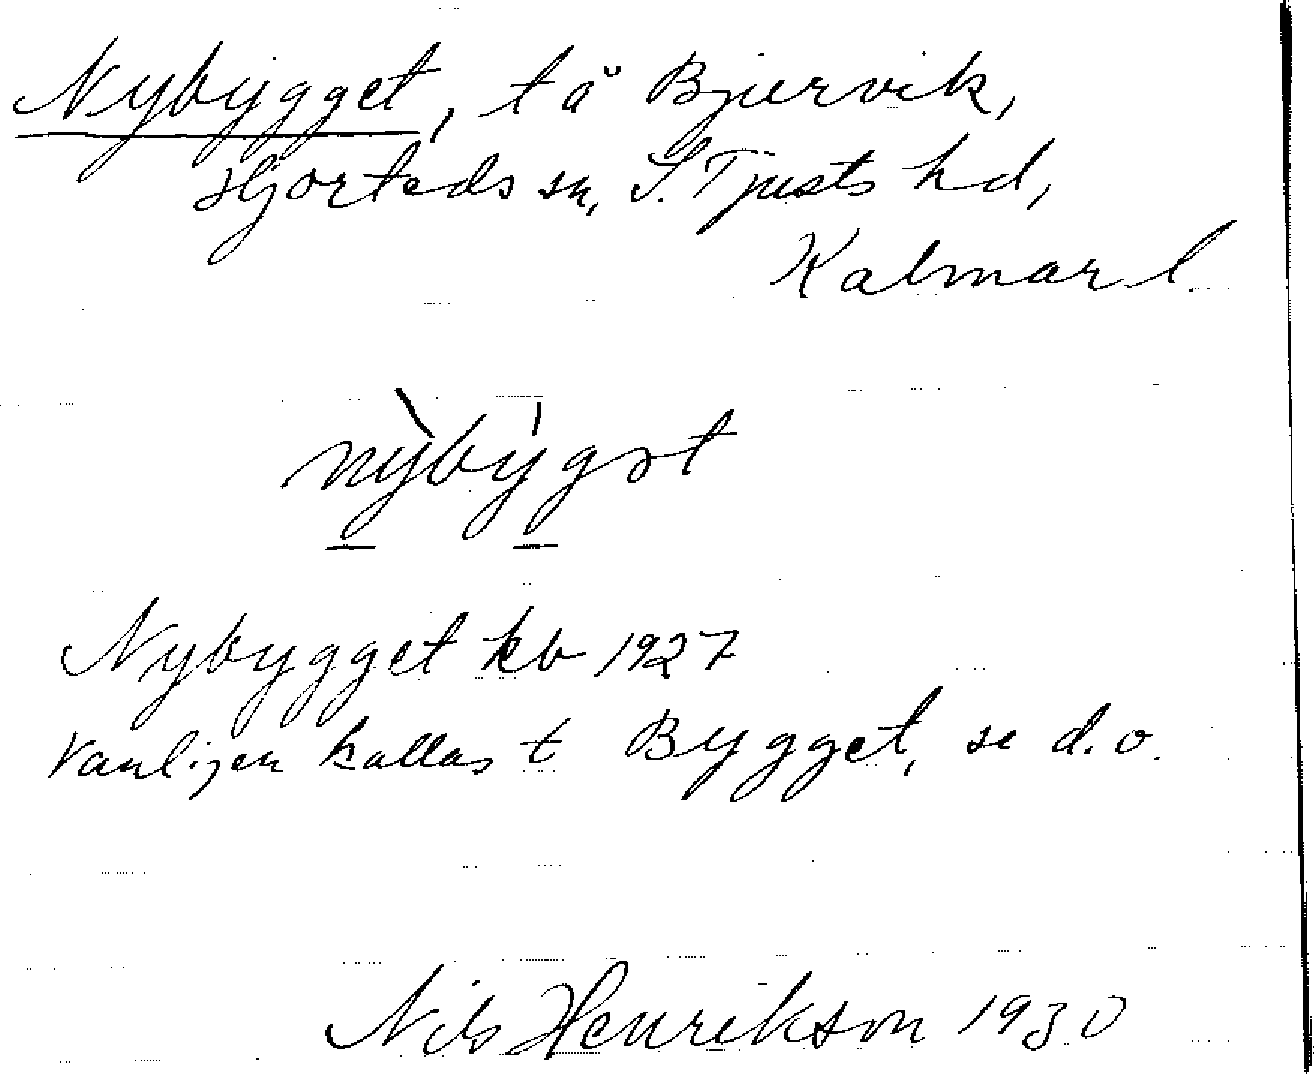 Nybygget, t å Bjervik,
Hjorteds sn, S. Tjusts hd,
Kalmar l.
nỳ̠bý̠gət
Nybygget kb 1927
Vanligen kallas t Bygget, se d.o.
Nils Henrikson 1930